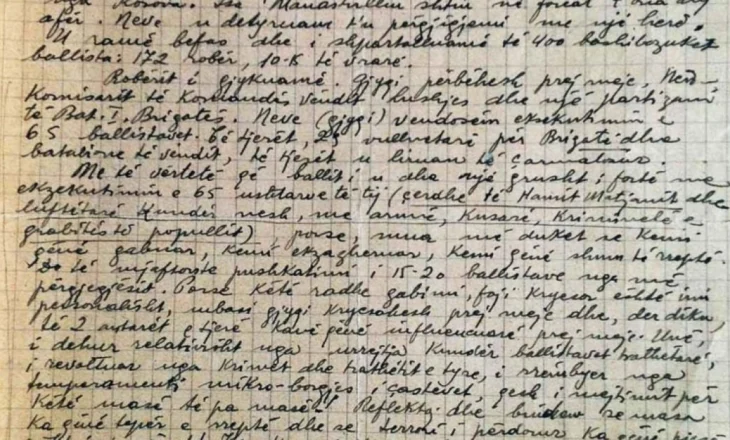 nga Kosova. Ise Manastirllin shtin në forcat t'ona aty
afër. Neve u detyruam t'u përgjigjemi me një herë.
U ramë befas dhe i shpartalluamë të 400 bashibozukët
ballista: 172 robër, 10-15 të vrarë.
Robërit i gjykuamë. Gjyqi përbëhesh prej meje, Nën-
Komisarit të Komandës Vëndit Lushjes dhe një partizani
të Bat. I. Brigatës. Neve (gjyqi) vendosëm eksekutimin e
65 ballistavet. Të tjerët, 25 vullnetarë për Brigatë dhe
batalione të vëndit, të tjerët u liruan të çarmatosur.
Me të vërtetë që ballit i u dha një grusht i fortë me
ekzekutimin e 65 ushtarve të tij (çerdhe të Hamit Matjanit dhe
luftëtarë Kundër nesh, me armë, Kusarë, Kriminelë e
grabitës të popullit) porse, mua më duket se Kemi
qënë gabuar, Kemi ekzagjeruar, Kemi qënë shum të rreptë.
Do të mjaftonte pushkatimi i 15-20 ballistave nga më
përgjegjësit. Porse Këtë radhe gabimi, faji Kryesor është imi
personalisht, mbasi gjyqi Kryesohesh prej meje dhe, der diku,
të 2 antarët e tjerë Kanë qënë influencuarë prej meje. Unë,
i dehur relativisht nga urrejtja Kundër ballistavet tradhëtarë,
i revoltuar nga Krimet dhe tradhëtit e tyre, i rrëmbyer nga
temperamenti mikro-borgjez i çastevet, qesh i mejtimit për
Këtë masë të pa masë! Reflektoj dhe bindem se masa
Ka qënë tepër e rreptë dhe se terrori i përdorur Ka qënë